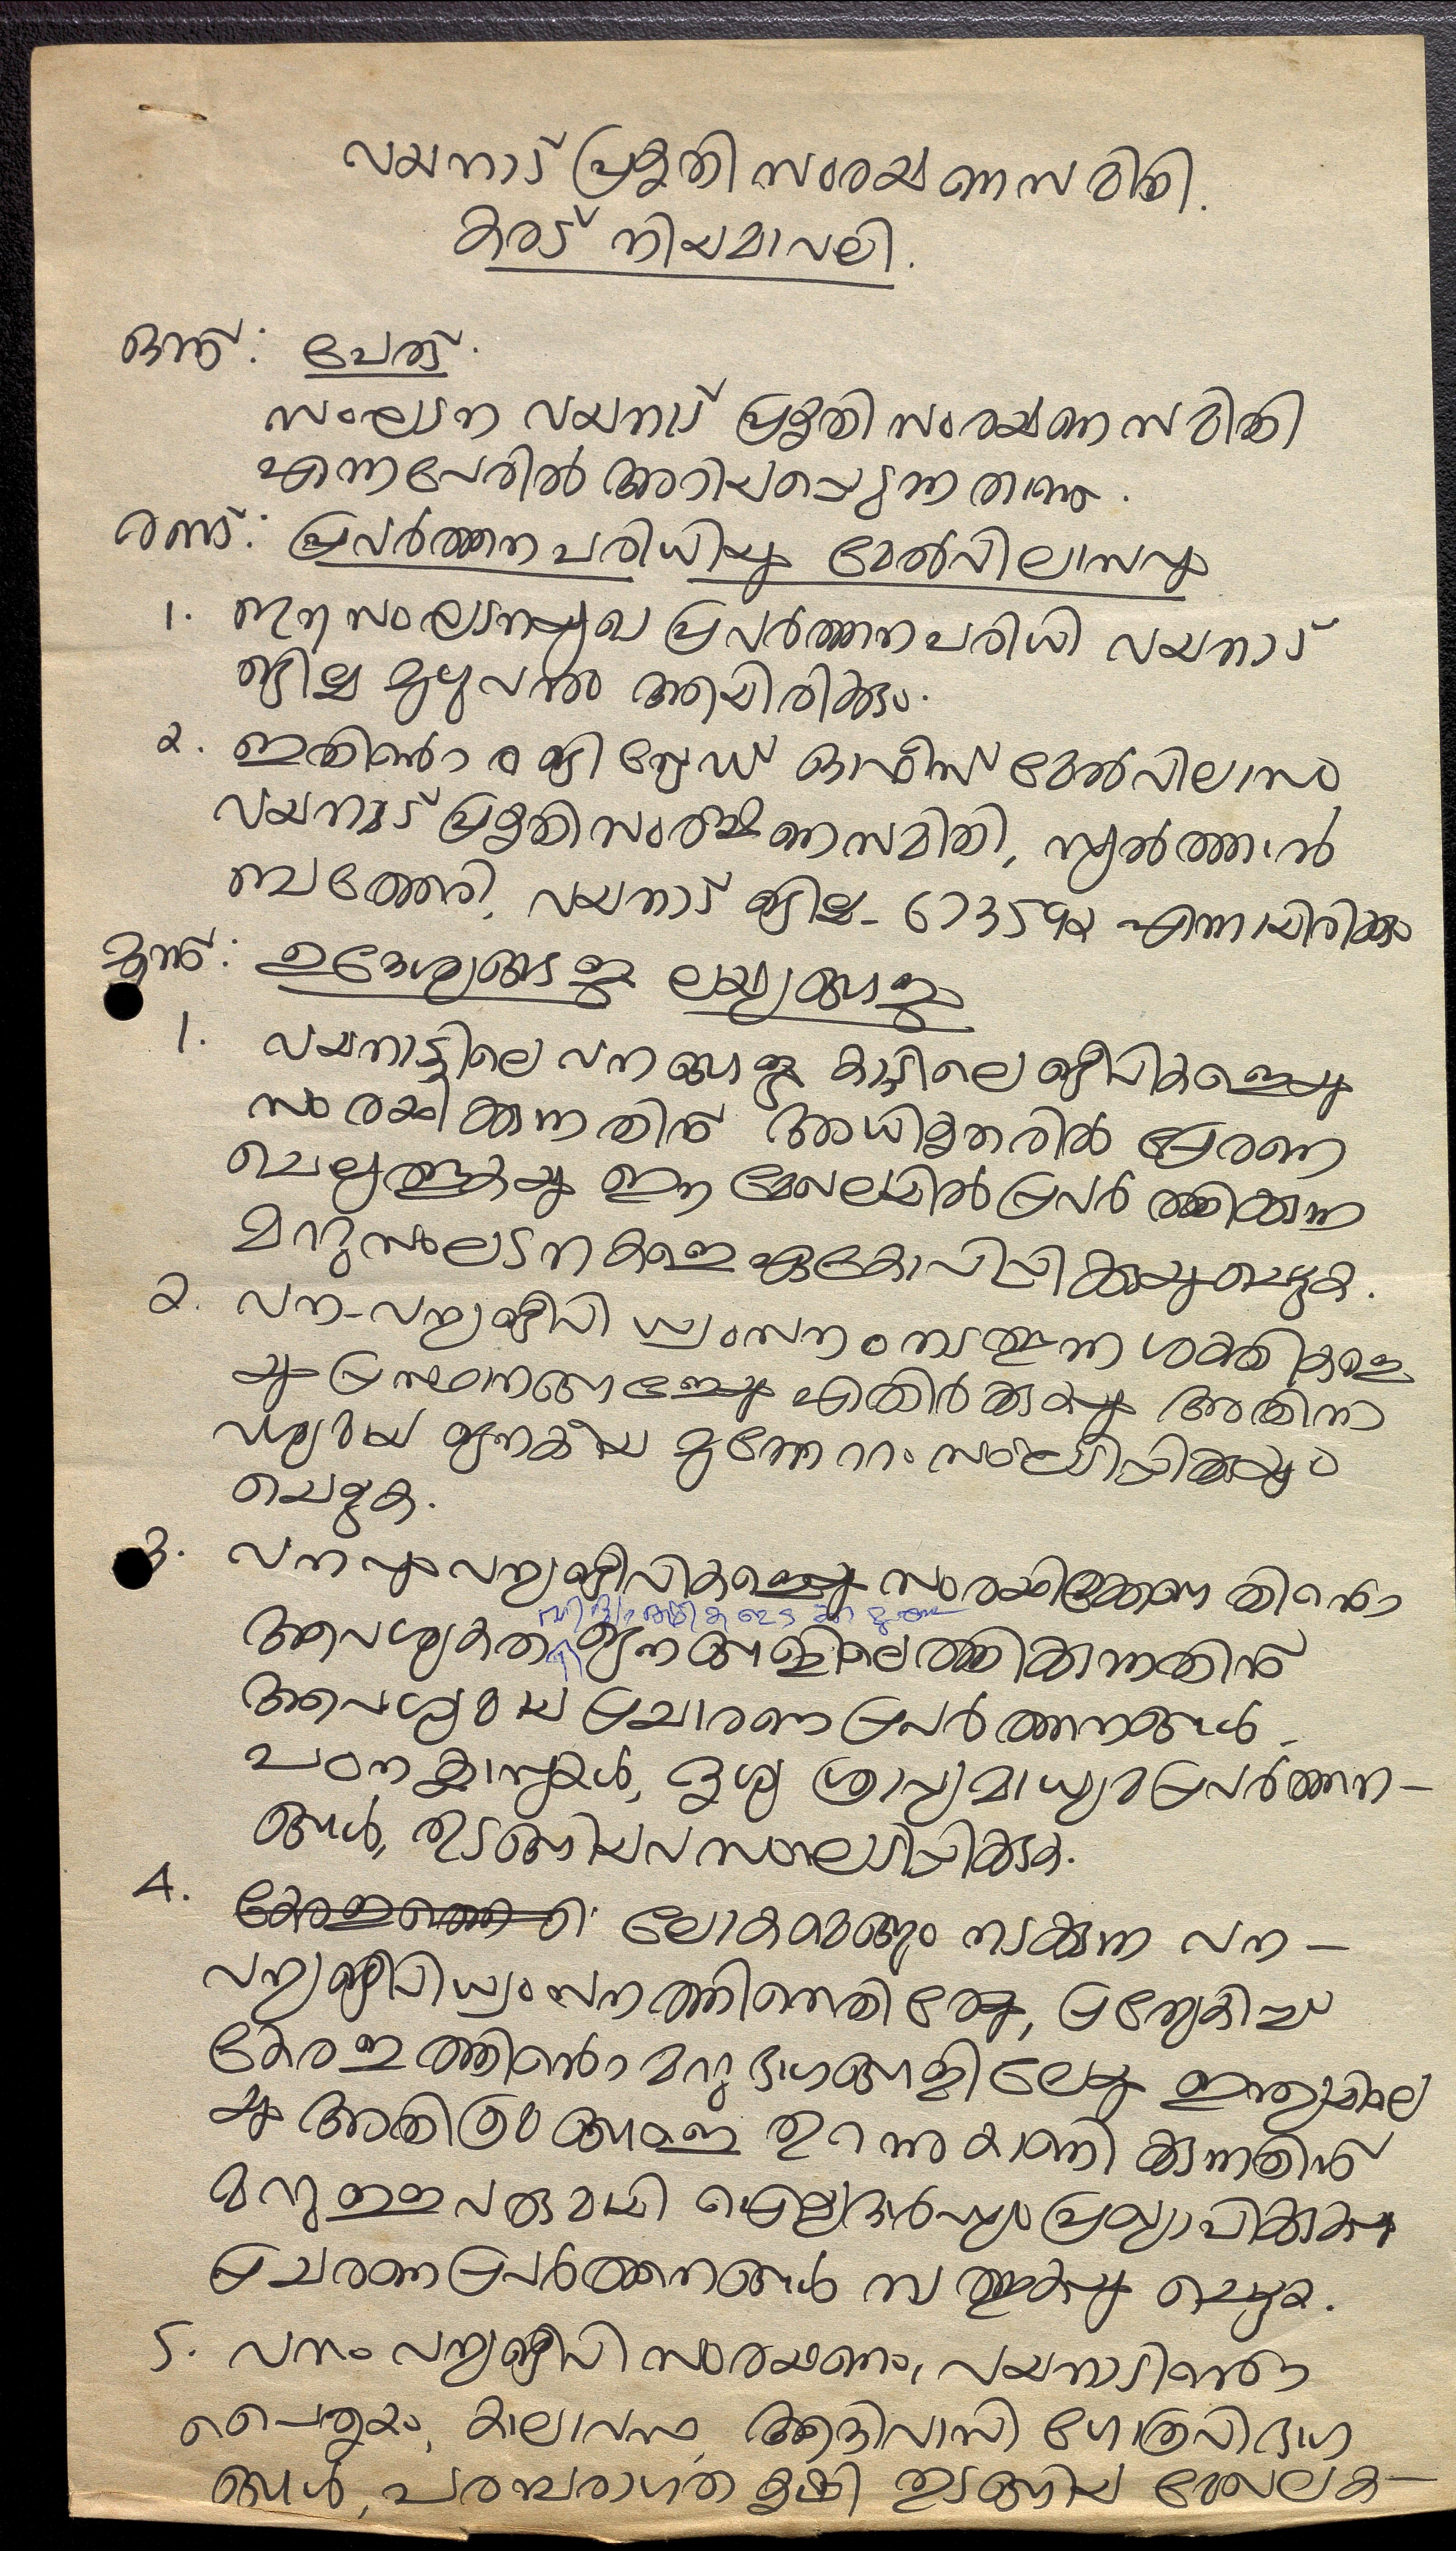 വയനാട് പ്രകൃതി സംരക്ഷണ സമിതി.
കരട് നിയമാവലി.
ഒന്ന്: പേര്.
സംഘടന വയനാട് പ്രകൃതി സംരക്ഷണ സമിതി
എന്നപേരിൽ അറിയപ്പെടുന്നതാണ്.
രണ്ട്: പ്രവർത്തന പരിധിയും മേൽവിലാസവും
1. ഈ സംഘടനയുടെ പ്രവർത്തന പരിധി വയനാട്
ജില്ല മുഴുവനും ആയിരിക്കും.
2. ഇതിന്റെ രജിസ്ട്രേഡ് ഓഫീസ് മേൽവിലാസം
വയനാട് പ്രകൃതി സംരക്ഷണ സമിതി, സുൽത്താൻ
ബത്തേരി, വയനാട് ജില്ല - 673592 എന്നായിരിക്കും
മൂന്ന്: ഉദ്ദേശ്യങ്ങളും ലക്ഷ്യങ്ങളും
1. വയനാട്ടിലെ വനങ്ങളും കാട്ടിലെ ജീവികളെയും
സംരക്ഷിക്കുന്നതിന് അധികൃതരിൽ പ്രേരണ
ചെലുത്തുകയും ഈ മേഖലയിൽ പ്രവർത്തിക്കുന്ന
മറ്റു സംഘടനകളെ ഏകോപിപ്പിക്കുകയും ചെയ്യുക.
2. വന-വന്യജീവി ധ്വംസനം നടത്തുന്ന ശക്തികളെ
യും പ്രസ്ഥാനങ്ങളേയും എതിർക്കുകയും അതിനാ
വശ്യമായ ജനകീയ മുന്നേറ്റം സംഘടിപ്പിക്കുകയും
ചെയ്യുക.
3. വനവും വന്യജീവികളെയും സംരക്ഷിക്കേണ്ടതിന്റെ
ആവശ്യകത ജനങ്ങളിലെത്തിക്കുന്നതിന്
ആവശ്യമായ പ്രചാരണ പ്രവർത്തനങ്ങൾ,
പഠന ക്ലാസുകൾ, ദൃശ്യ ശ്രാവ്യ മാധ്യമ പ്രവർത്തന-
ങ്ങൾ, തുടങ്ങിയവ സംഘടിപ്പിക്കുക.
4. ലോകമെങ്ങും നടക്കുന്ന വന-
വന്യജീവി ധ്വംസനത്തിനെതിരേയും, പ്രത്യേകിച്ച്
കേരളത്തിന്റെ മറ്റു ഭാഗങ്ങളിലെയും ഇന്ത്യയിലെ
യും അതിക്രമങ്ങളെ തുറന്നുകാണിക്കുന്നതിന്
മറ്റുള്ളവരുമായി ഐക്യദാർഢ്യം പ്രഖ്യാപിക്കുകയും
പ്രചരണ പ്രവർത്തനങ്ങൾ നടത്തുകയും ചെയ്യുക.
5. വനം വന്യജീവി സംരക്ഷണം, വയനാടിന്റെ
പൈതൃകം, കാലാവസ്ഥ, ആദിവാസി ഗോത്രവിഭാഗ
ങ്ങൾ, പരമ്പരാഗത കൃഷി തുടങ്ങിയ മേഖലക-